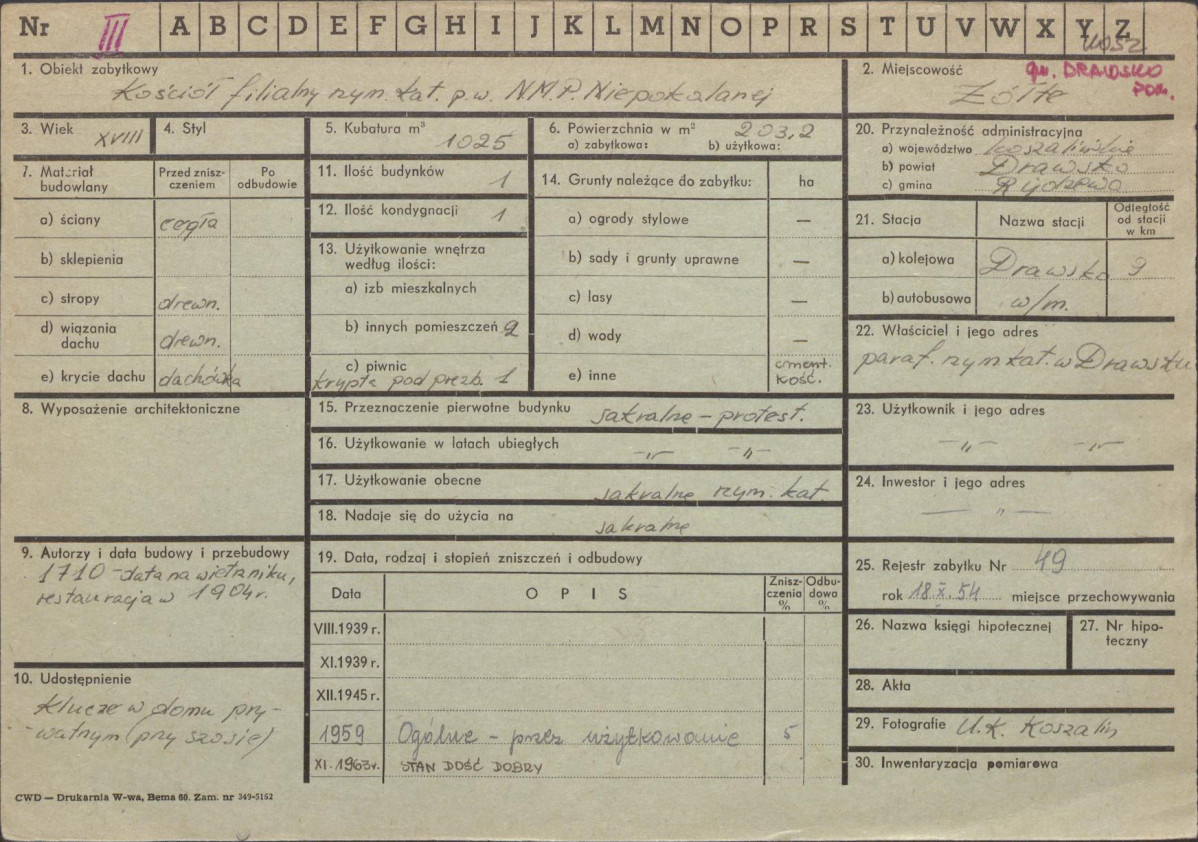 Nr III A B C D E F G H I J K L M N O P R S T U V W X Y Z
KOSZ
1. Obiekt zabytkowy
Kościół filialny rzym. kat. p.w. NMP. Niepokalanej
2. Miejscowość
gm. DRAWSKO
POM.
Żółte
3. Wiek XVIII
4. Styl
5. Kubatura m³ 1025
6. Powierzchnia w m² 203,2
a) zabytkowa: b) użytkowa:
7. Materiał budowlany
Przed zniszczeniem
Po odbudowie
a) ściany cegła
b) sklepienia
c) stropy drewn.
d) wiązania dachu drewn.
e) krycie dachu dachówka
8. Wyposażenie architektoniczne
9. Autorzy i data budowy i przebudowy
1710 - data na wietrzniku,
restauracja w 1904 r.
10. Udostępnienie
Klucze w domu pry-
-watnym (przy szosie)
11. Ilość budynków 1
12. Ilość kondygnacji 1
13. Użytkowanie wnętrza
według ilości:
a) izb mieszkalnych
b) innych pomieszczeń 2
c) piwnic
krypta pod prezb. 1
14. Grunty należące do zabytku: ha
a) ogrody stylowe —
b) sady i grunty uprawne —
c) lasy —
d) wody —
e) inne cment. kość.
15. Przeznaczenie pierwotne budynku sakralne - protest.
16. Użytkowanie w latach ubiegłych -„- -„-
17. Użytkowanie obecne sakralne rzym. kat.
18. Nadaje się do użycia na sakralne
19. Data, rodzaj i stopień zniszczeń i odbudowy
Data OPIS Zniszczenia % Odbudowa %
VIII.1939 r.
XI.1939 r.
XII.1945 r.
1959 Ogólne - przez użytkowanie 5
XI.1963r. STAN DOŚĆ DOBRY
20. Przynależność administracyjna
a) województwo koszalińskie
b) powiat Drawsko
c) gmina Rydzewo
21. Stacja
Nazwa stacji
Odległość od stacji w km
a) kolejowa Drawsko 9
b) autobusowa w/m.
22. Właściciel i jego adres
paraf. rzym kat. w Drawsku
23. Użytkownik i jego adres
-„- -„-
24. Inwestor i jego adres
— „ —
25. Rejestr zabytku Nr 49
rok 18.X.54 miejsce przechowywania
26. Nazwa księgi hipotecznej
27. Nr hipo-
teczny
28. Akta
29. Fotografie U.K. Koszalin
30. Inwentaryzacja pomiarowa
CWD — Drukarnia W-wa, Bema 60. Zam. nr 349-5162